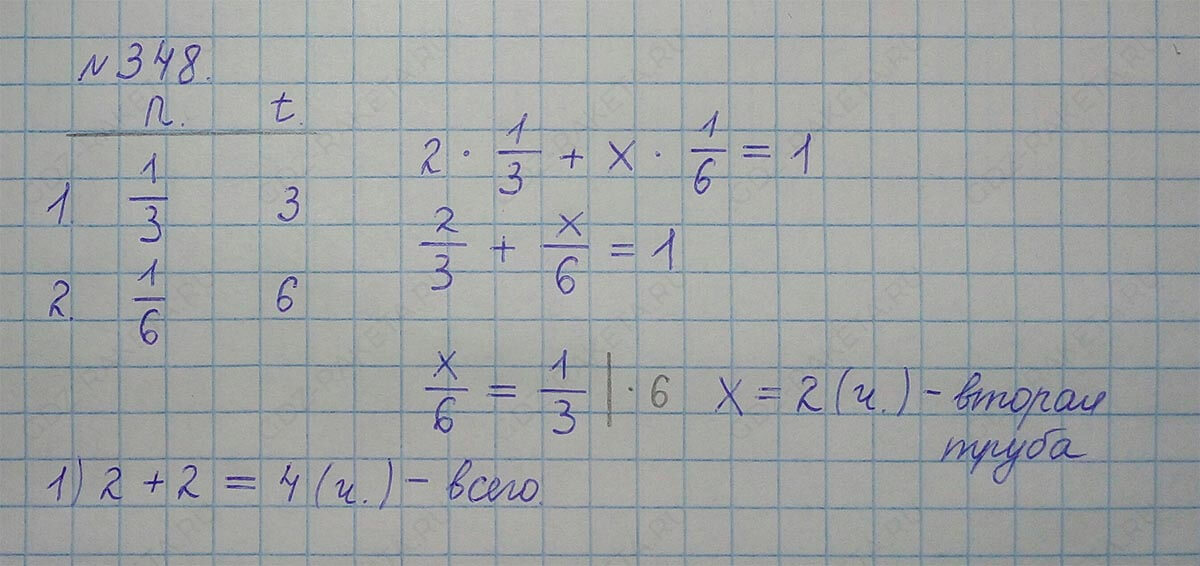 №348.
П. t.
1. 1/3 3
2. 1/6 6
2 · 1/3 + x · 1/6 = 1
2/3 + x/6 = 1
x/6 = 1/3 | · 6 x = 2 (ч.) – вторая
труба
1) 2 + 2 = 4 (ч.) – всего.